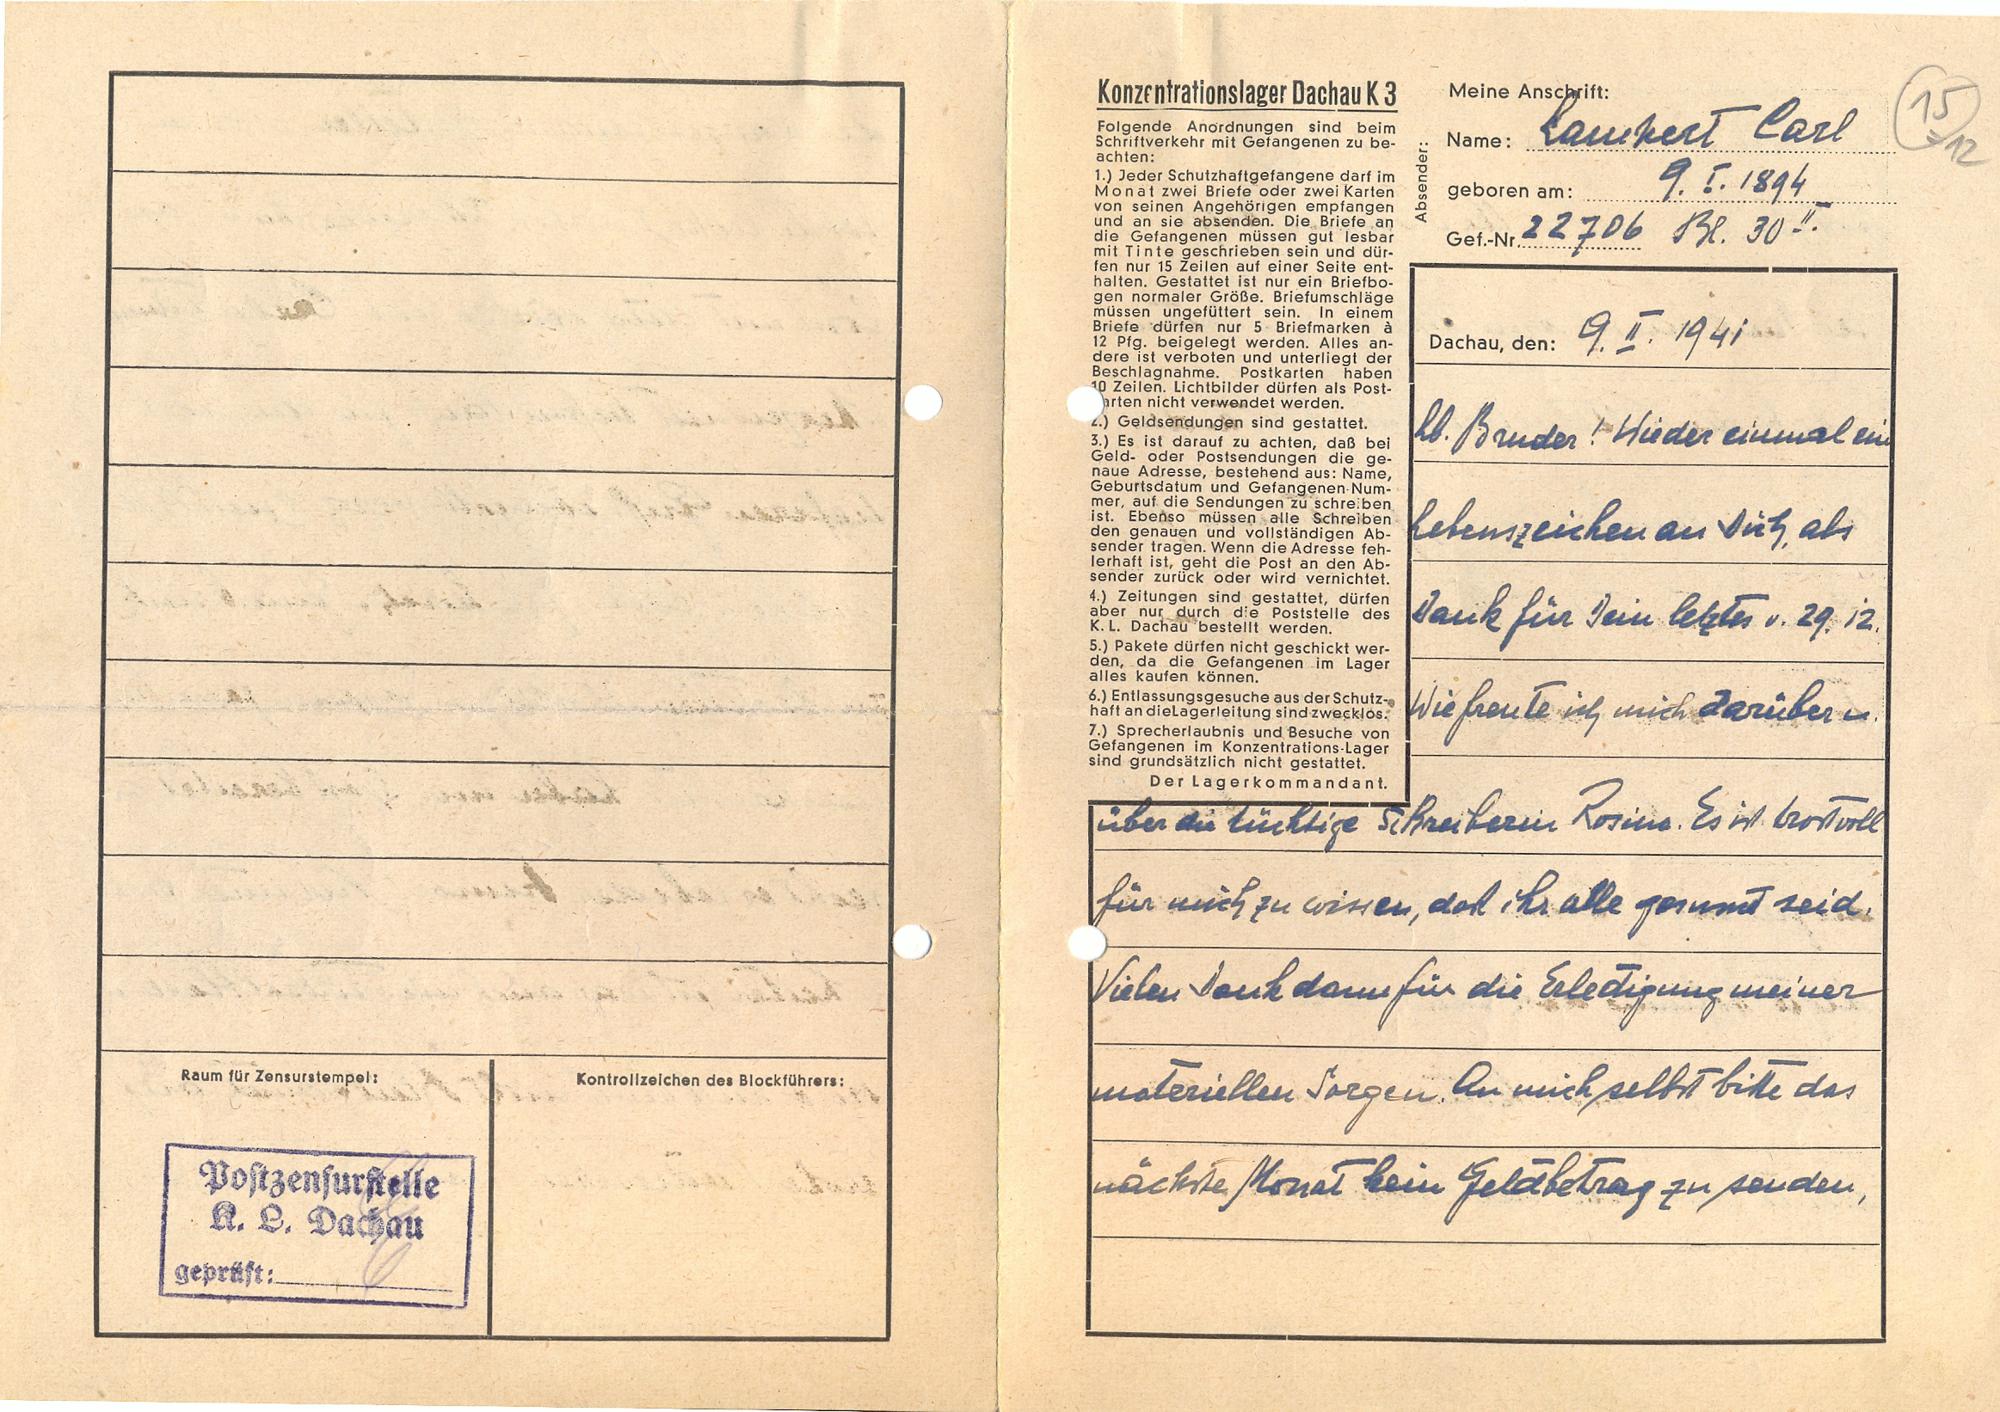 Raum für Zensurstempel:
Kontrollzeichen des Blockführers:
Postzensurstelle
K. L. Dachau
geprüft:
Konzentrationslager Dachau K 3
Folgende Anordnungen sind beim
Schriftverkehr mit Gefangenen zu be-
achten:
1.) Jeder Schutzhaftgefangene darf im
Monat zwei Briefe oder zwei Karten
von seinen Angehörigen empfangen
und an sie absenden. Die Briefe an
die Gefangenen müssen gut lesbar
mit Tinte geschrieben sein und dür-
fen nur 15 Zeilen auf einer Seite ent-
halten. Gestattet ist nur ein Briefbo-
gen normaler Größe. Briefumschläge
müssen ungefüttert sein. In einem
Briefe dürfen nur 5 Briefmarken à
12 Pfg. beigelegt werden. Alles an-
dere ist verboten und unterliegt der
Beschlagnahme. Postkarten haben
10 Zeilen. Lichtbilder dürfen als Post-
karten nicht verwendet werden.
2.) Geldsendungen sind gestattet.
3.) Es ist darauf zu achten, daß bei
Geld- oder Postsendungen die ge-
naue Adresse, bestehend aus: Name,
Geburtsdatum und Gefangenen-Num-
mer, auf die Sendungen zu schreiben
ist. Ebenso müssen alle Schreiben
den genauen und vollständigen Ab-
sender tragen. Wenn die Adresse feh-
lerhaft ist, geht die Post an den Ab-
sender zurück oder wird vernichtet.
4.) Zeitungen sind gestattet, dürfen
aber nur durch die Poststelle des
K. L. Dachau bestellt werden.
5.) Pakete dürfen nicht geschickt wer-
den, da die Gefangenen im Lager
alles kaufen können.
6.) Entlassungsgesuche aus der Schutz-
haft an die Lagerleitung sind zwecklos.
7.) Sprecherlaubnis und Besuche von
Gefangenen im Konzentrations-Lager
sind grundsätzlich nicht gestattet.
Der Lagerkommandant.
Absender:
Meine Anschrift:
Name: Lampert Carl
geboren am: 9. I. 1894
Gef.-Nr. 22706 Bl. 30 II.
15
12
Dachau, den: 9. II. 1941
Lb. Bruder! Wieder einmal ein
Lebenszeichen an Dich, als
Dank für Dein letztes v. 29. 12.
Wie freute ich mich darüber u.
über die tüchtige Schreiberin Rosina. Es ist trostvoll
für mich zu wissen, daß ihr alle gesund seid.
Vielen Dank dann für die Erledigung meiner
materiellen Sorgen. An mich selbst bitte das
nächste Monat kein Geldbetrag zu senden,